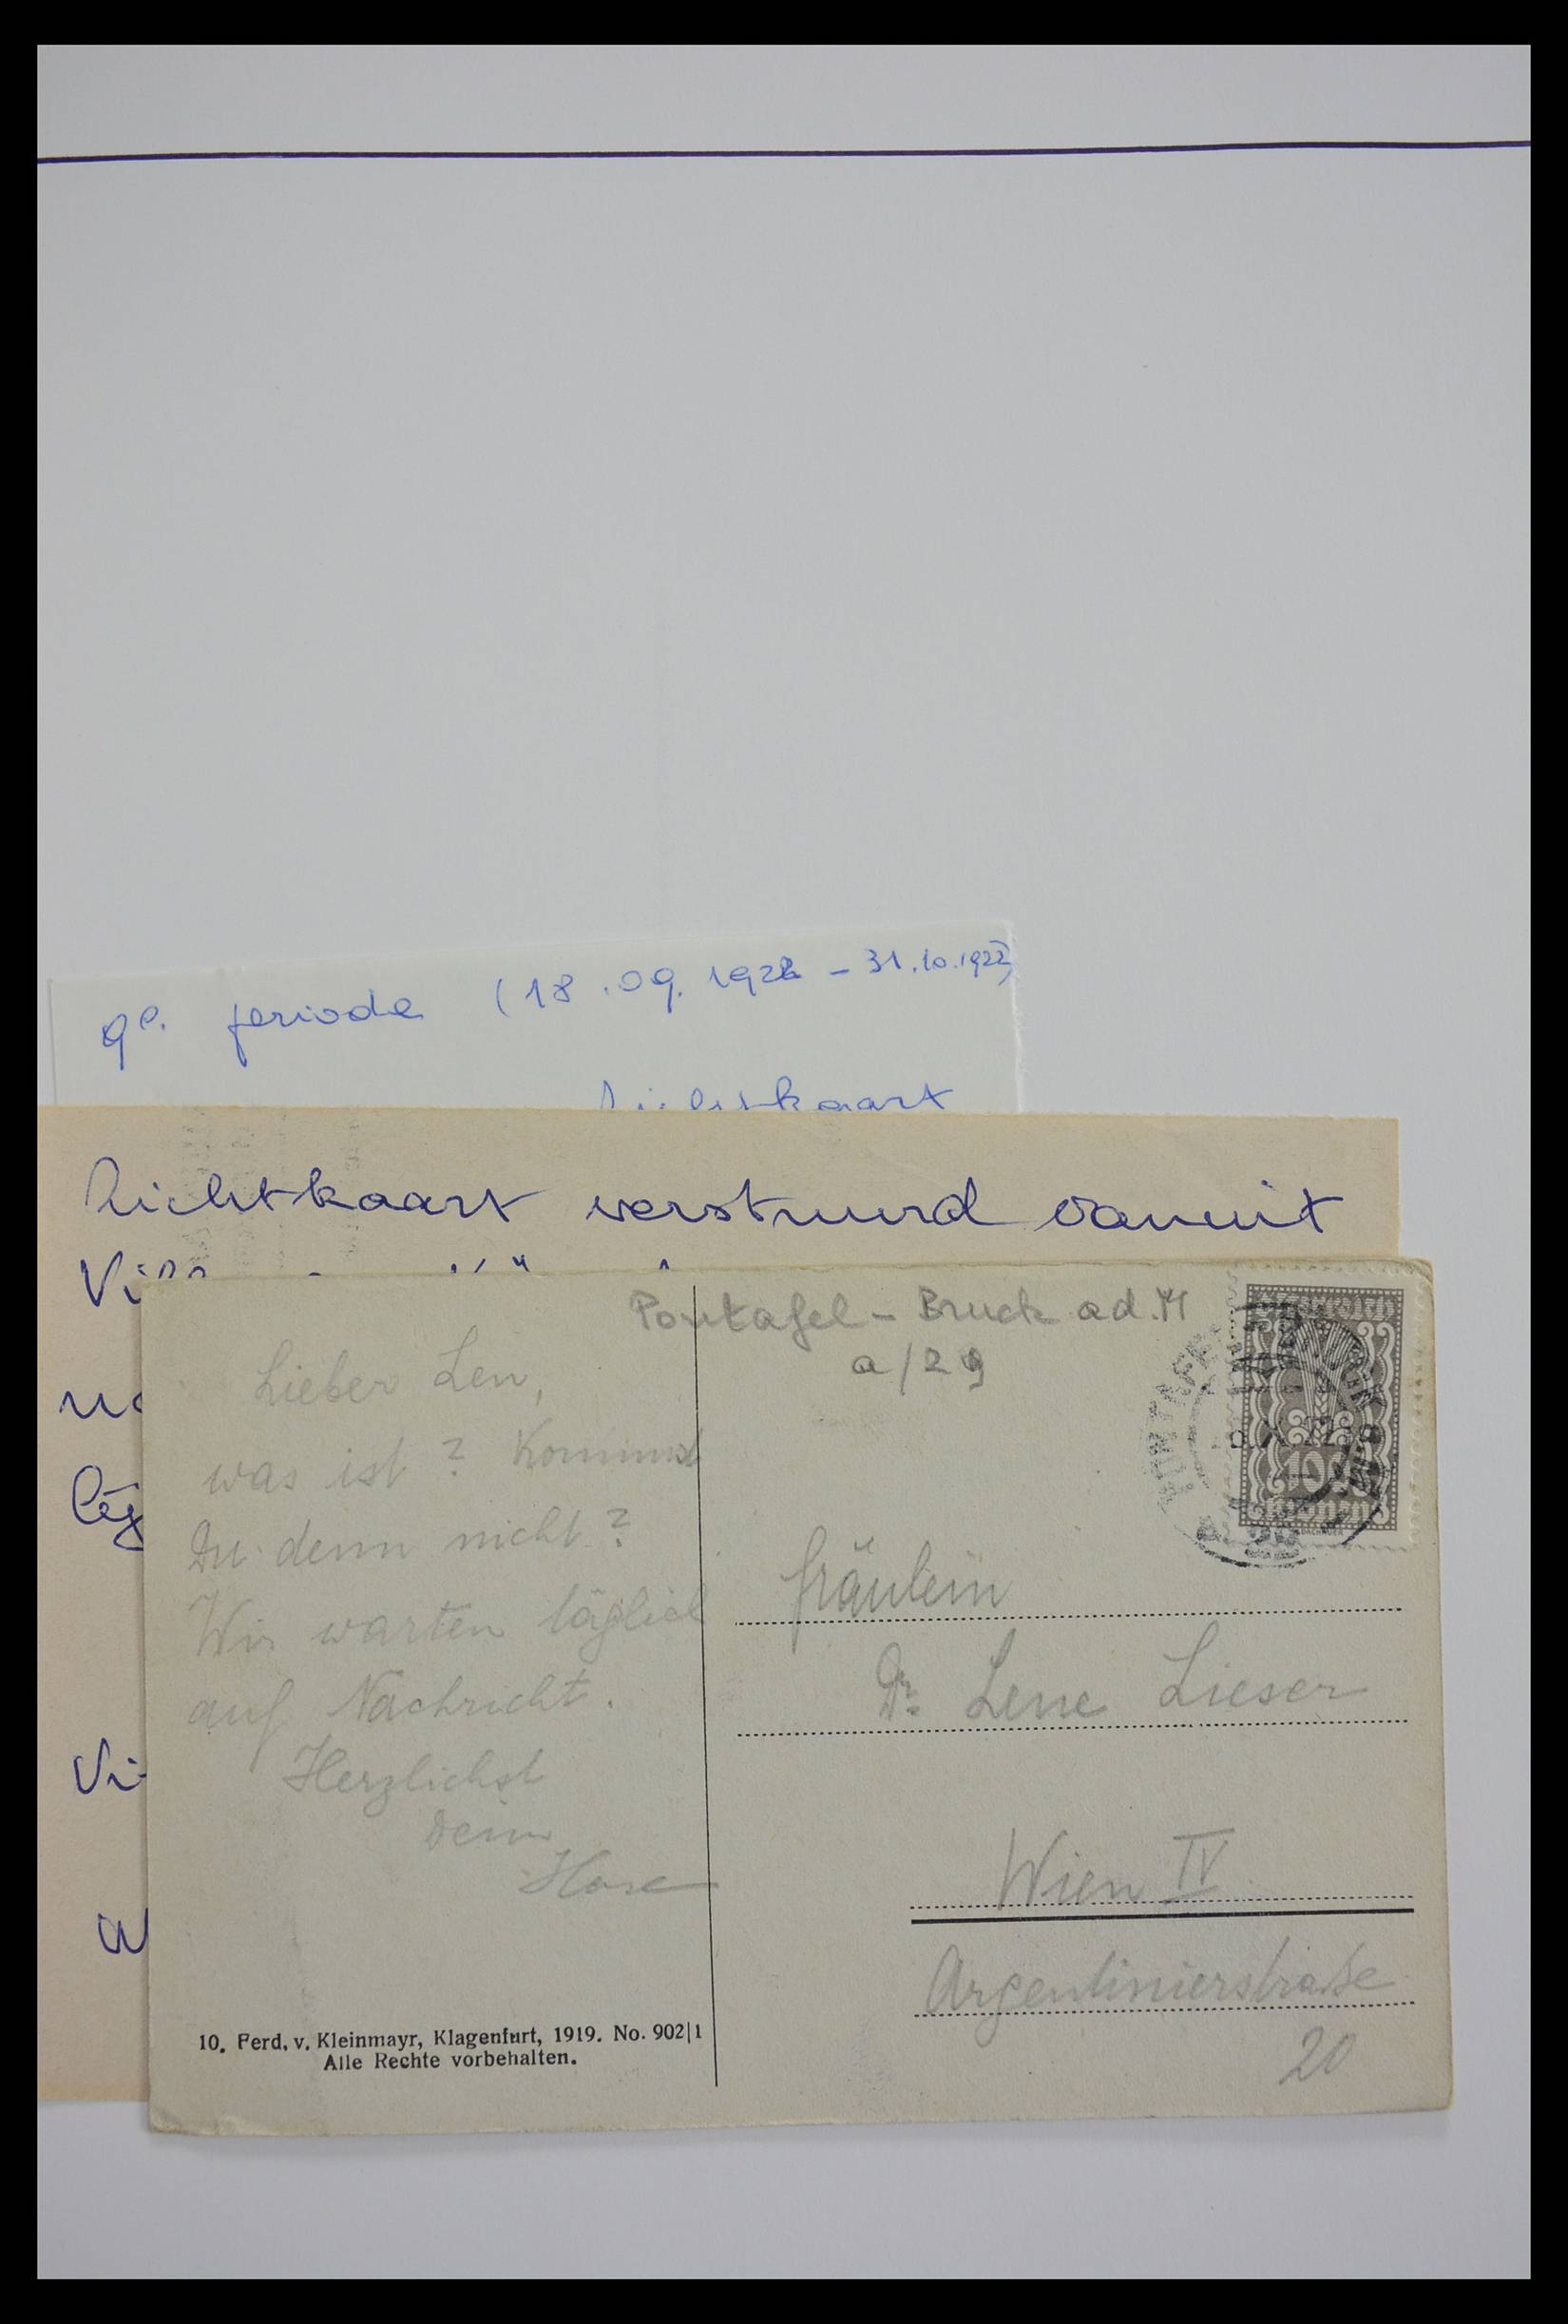 9e. periode (18.09.1922 - 31.10.1922)
Lichtkaart
Lichtkaart verstuurd vanuit
Pontafel - Bruck a d. M
a/29
Lieber Len,
was ist? Kommst
Du denn nicht?
Wir warten täglich
auf Nachricht.
Herzlichst
Dein
Hase
10. Ferd. v. Kleinmayr, Klagenfurt, 1919. No. 902|1
Alle Rechte vorbehalten.
100
Kronen
Fräulein
Dr. Lene Lieser
Wien IV
Argentinierstraße
20